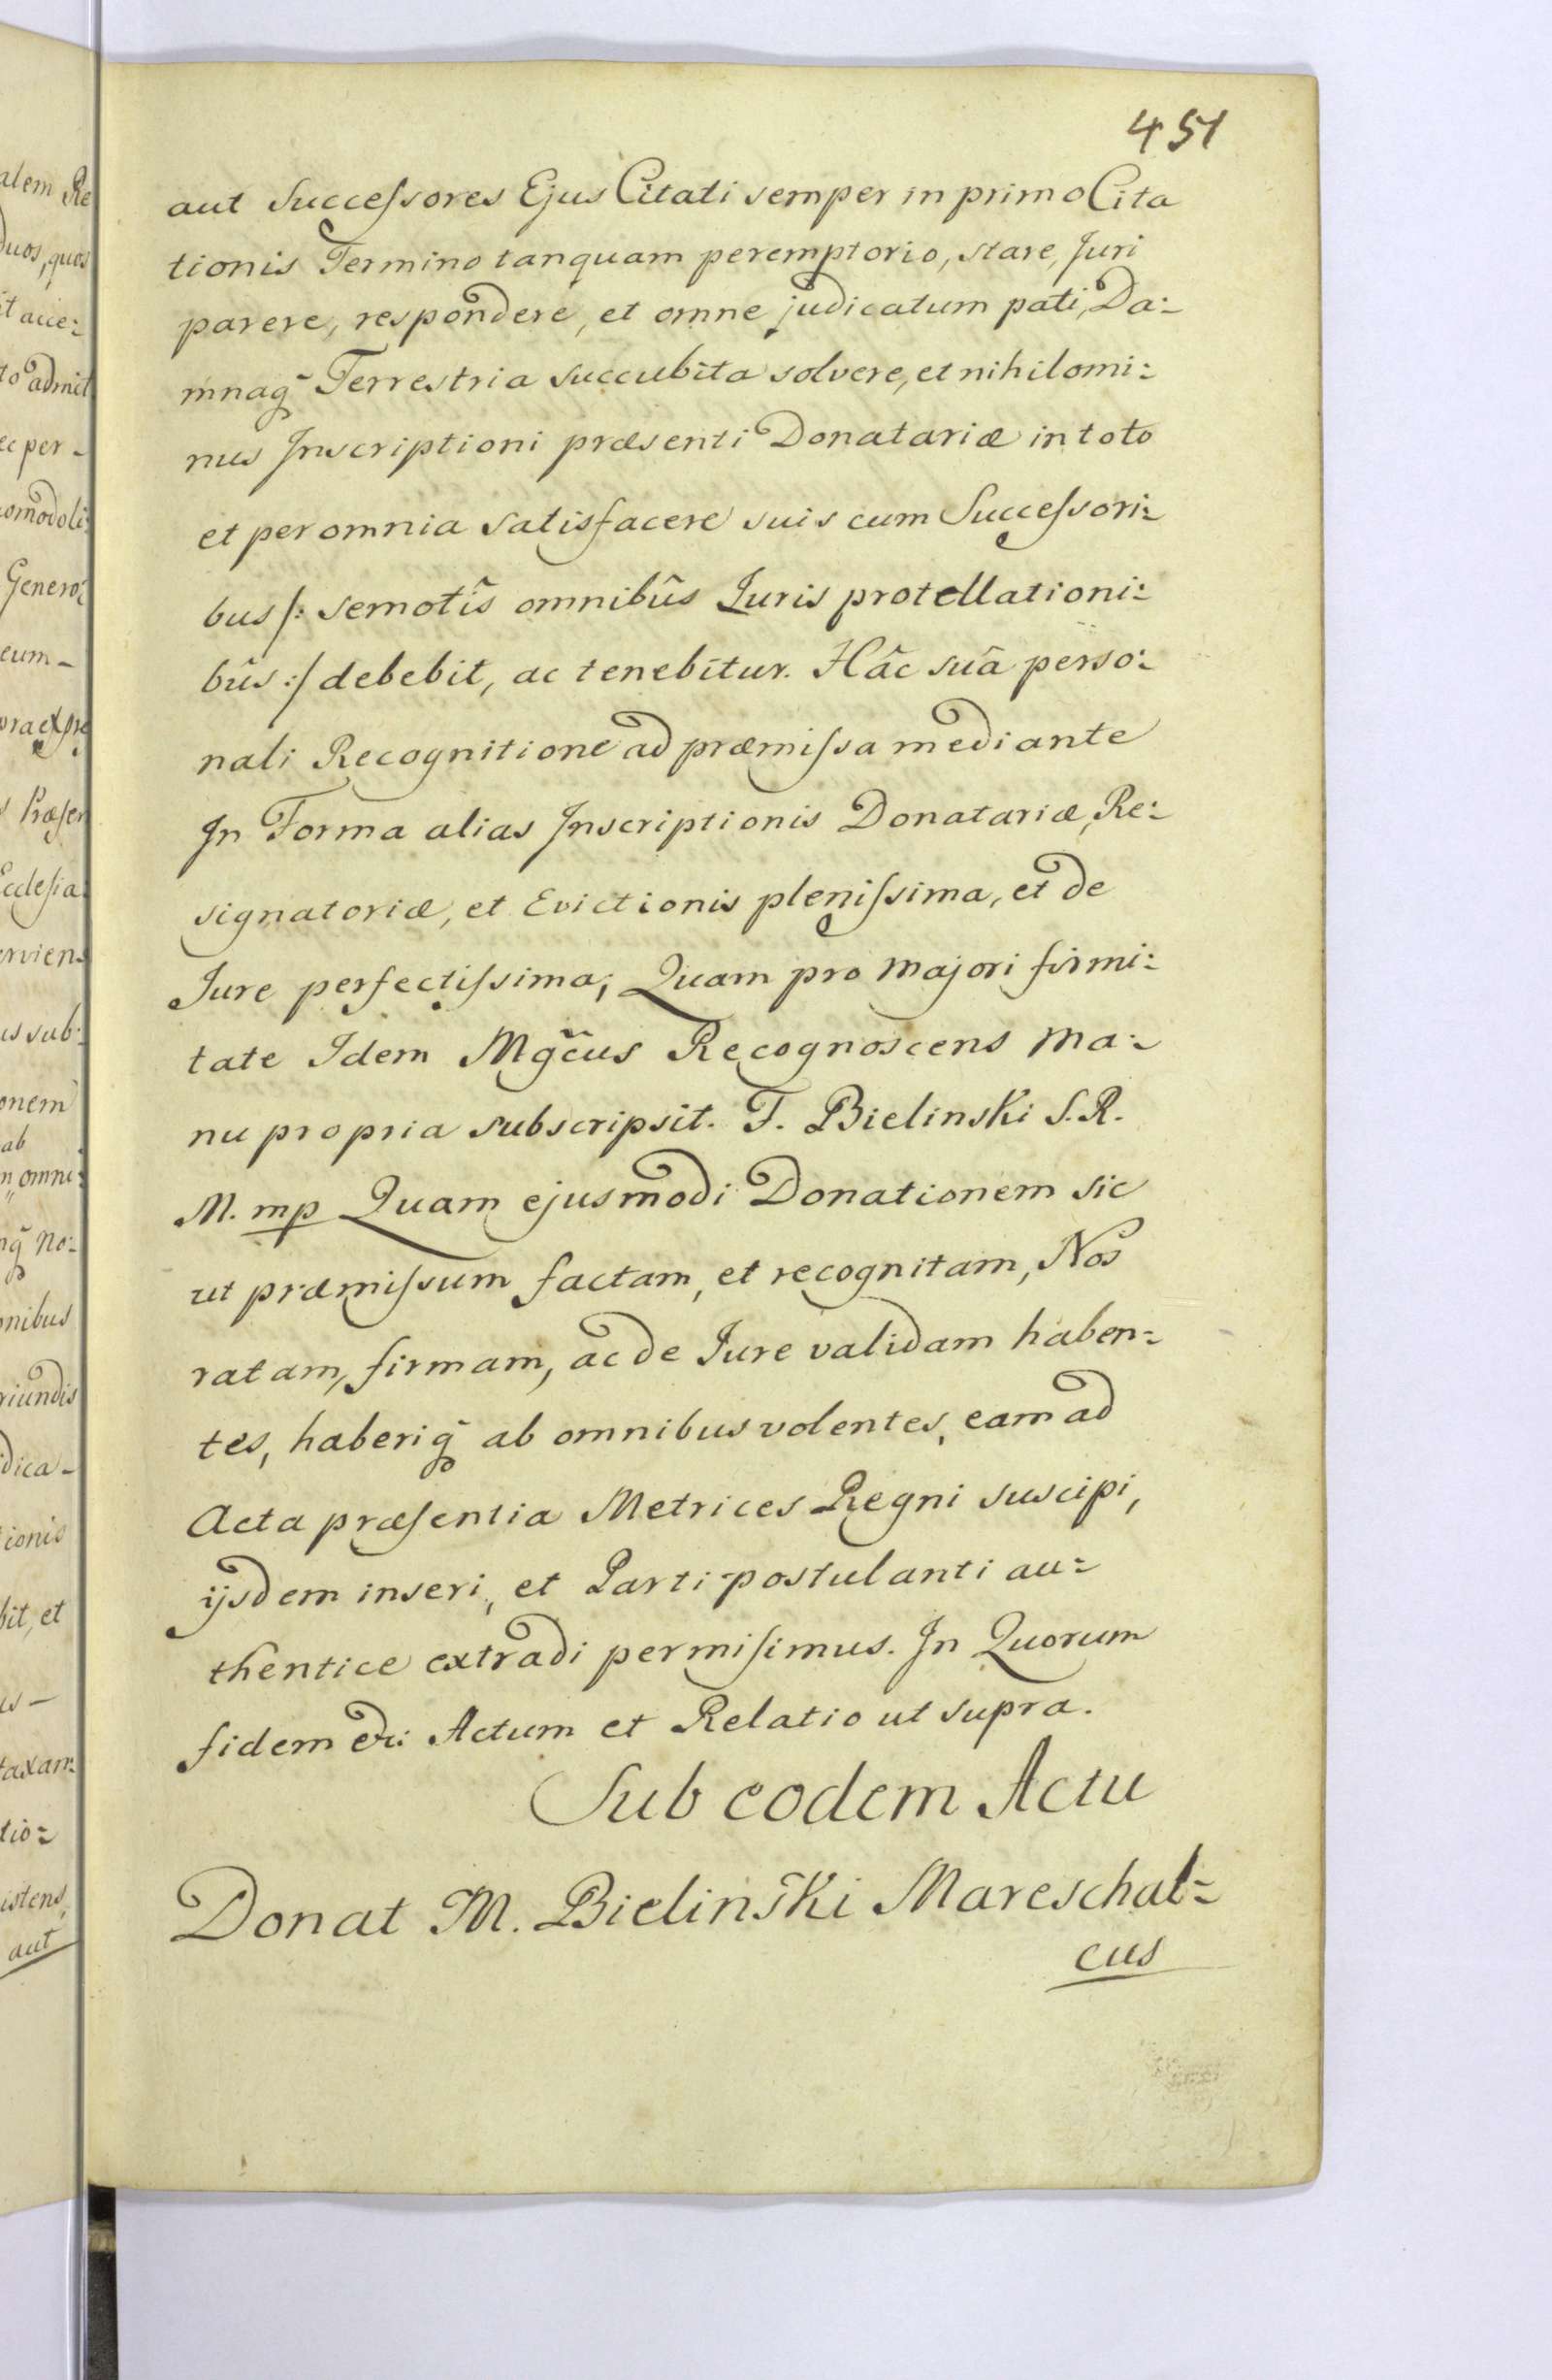 451
aut Successores Ejus Citati semper in primo Cita
tionis Termino tanquam peremptorio, stare, Juri
parere, respondere, et omne judicatum pati, Da:
mnaq̃ Terrestria succubita solvere, et nihilomi:
nus Inscriptioni præsenti Donatariæ in toto
et per omnia satisfacere suis cum Successori:
bus /: semotîs omnibûs Juris protellationi:
bûs :/ debebit, ac tenebitur. Hâc suâ perso:
nali Recognitione ad præmissa mediante
In Forma alias Inscriptionis Donatariæ, Re:
signatoriæ, et Evictionis plenissima, et de
Jure perfectissima; Quam pro majori firmi:
tate Idem Mgc̃us Recognoscens ma:
nu propria subscripsit. F. Bielinski S.R.
M. mp Quam ejusmodi Donationem sic
ut præmissum factam, et recognitam, Nos
ratam, firmam, ac de Jure validam haben:
tes, haberiq̃ ab omnibus volentes, eam ad
Acta præsentia Metrices Regni suscipi,
ijsdem inseri, et Parti postulanti au:
thentice extradi permisimus. In Quorum
fidem &c: Actum et Relatio ut supra.
Sub eodem Actu
Donat M. Bielinski Mareschal:
cus
alem Re
duos, quos
it acce:
to admit
ec per -
comodoli:
Genero:
eum -
Ecclesia
us sub:
onem
ab
n omni:
nq̃ no:
nibus
riundis
dica -
tionis
bit, et
taxam:
tio:
istens,
aut